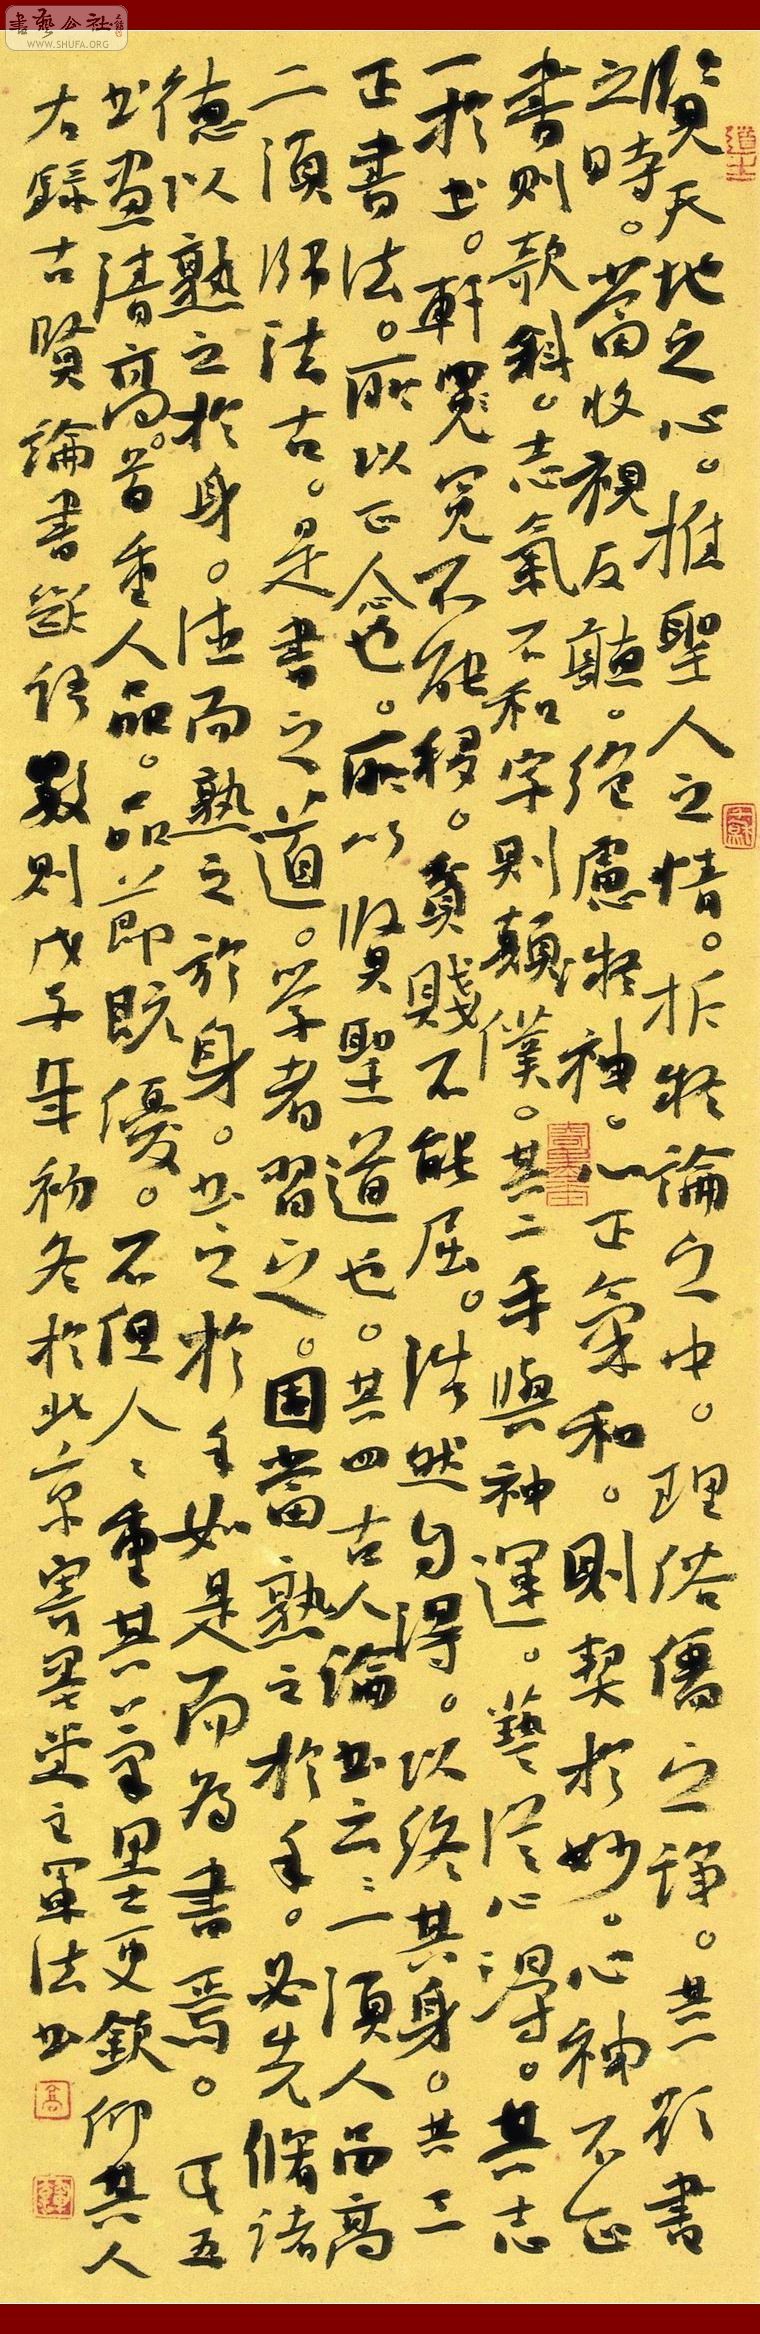 書藝公社
WWW.SHUFA.ORG
賢天地之心。推聖人之情。析疑論之中。理俗儒之諍。其一欲書
之時。當收視反聽。絕慮凝神。心正氣和。則契於妙。心神不正
書則欹斜。志氣不和字則顛仆。其二手與神運。藝從心得。其志
一於書。軒冕不能移。貧賤不能屈。浩然自得。以終其身。其三
正書法。所以正人心也。所以賢聖道也。其四古人論書云一須人品高
二須師法古。是書之道。学者習之。固當熟之於手。必先脩諸
德以熟之於身。德而熟之於身。書之於手如是而為書焉。其五
書畫清高。首重人品。品節既優。不但人々重其筆墨更欽仰其人
右錄古賢論書語數則戊子年初冬於北京寄墨堂主軍法書